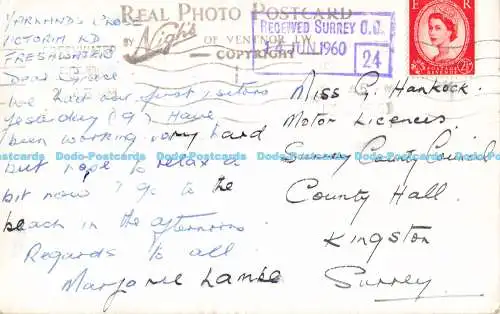 YARMANDS LODGE
VICTORIA RD
FRESHWATER
Dear Grace
We had our first visitors
yesterday (9). Have
been working very hard
but hope to relax a
bit now & go to the
beach in the afternoons.
Regards to all.
Marjorie Lance
REAL PHOTO POSTCARD
BY Nigh's
OF VENTNOR, I.W.
COPYRIGHT
RECEIVED SURREY C.C.
14 JUN 1960
24
E R
POSTAGE REVENUE
2½D
Miss G. Hancock.
Motor Licences.
Surrey County Council
County Hall.
Kingston
Surrey.
Dodo-Postcards Dodo-Postcards Dodo-Postcards Dodo-Postcards Dodo-Postcards Dodo-Postcards